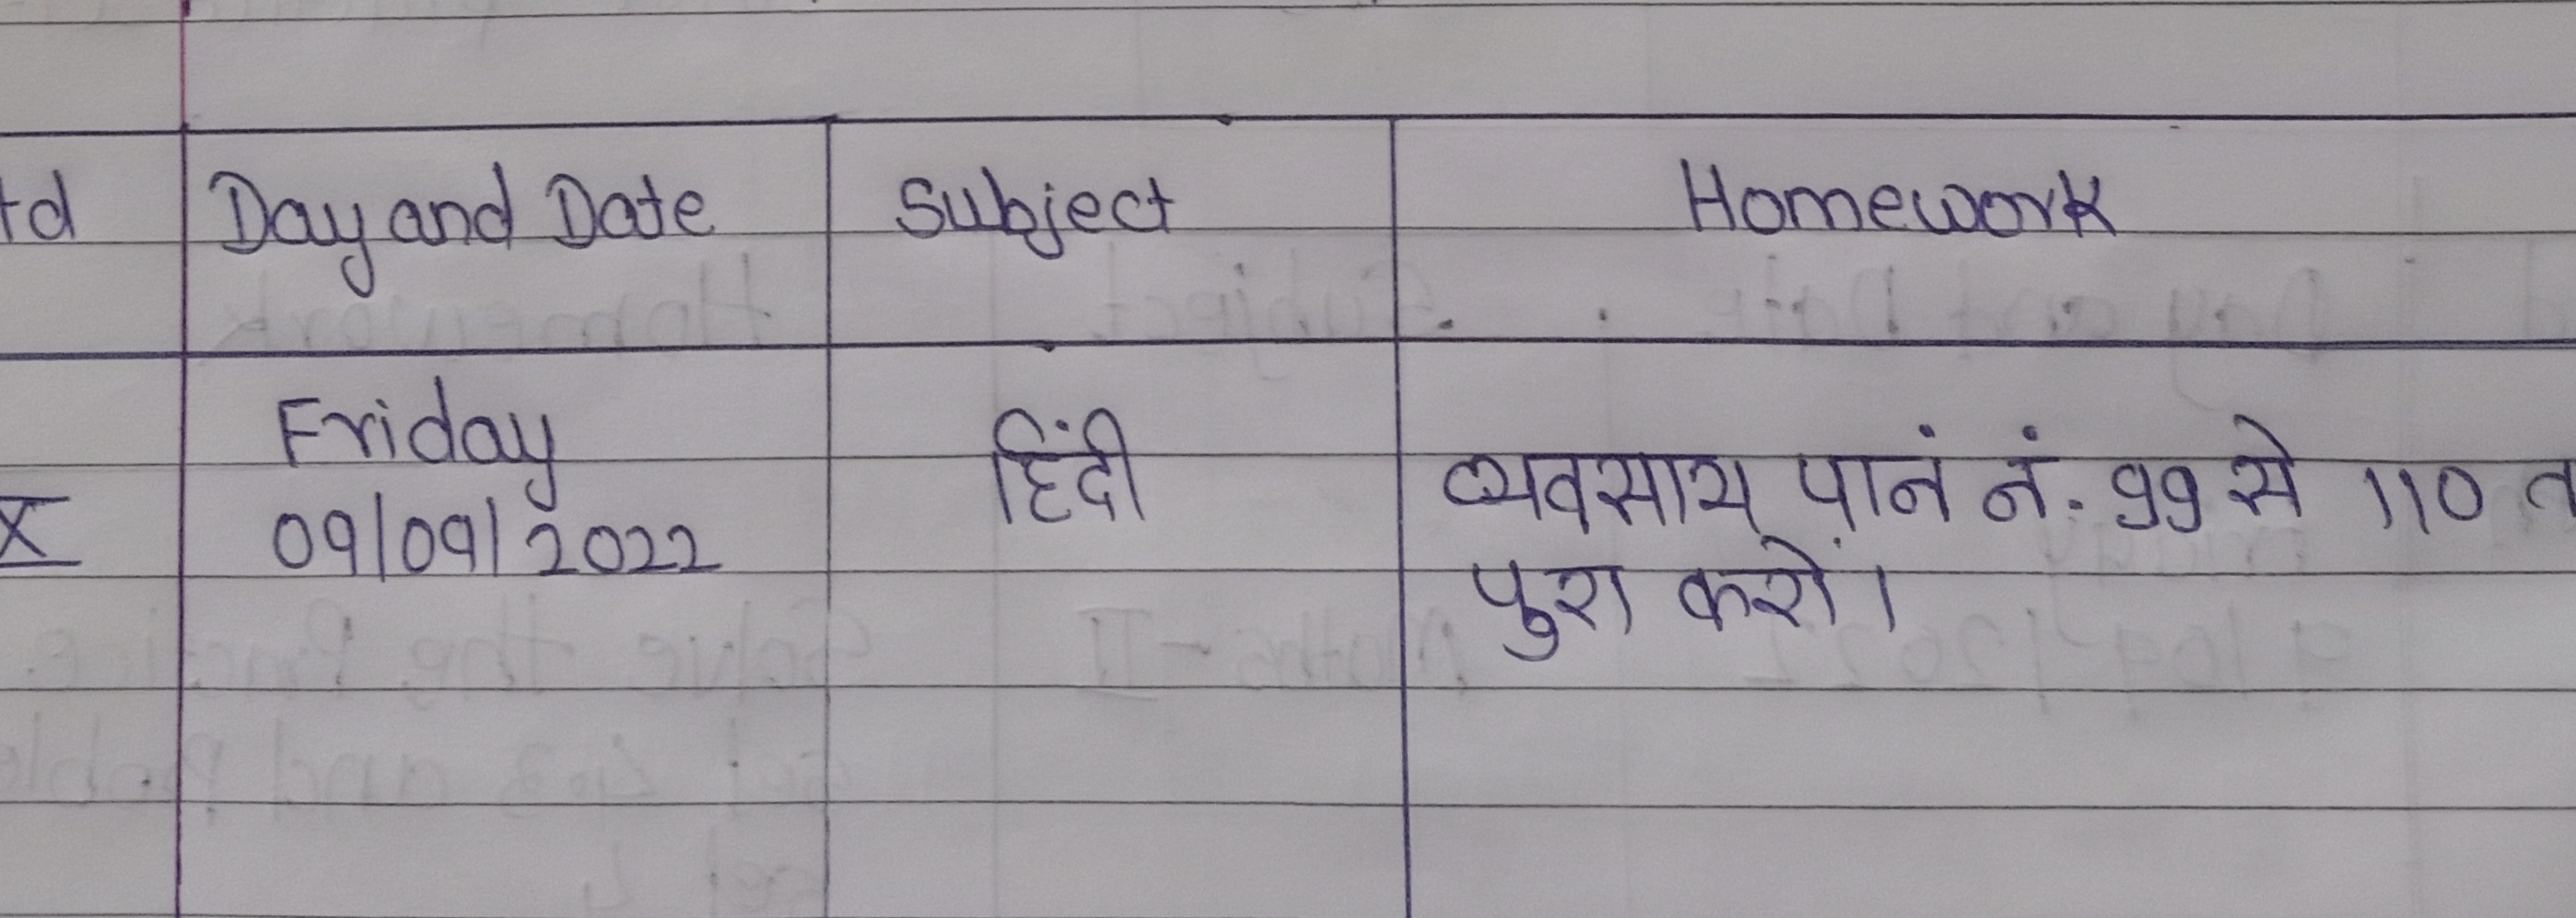 td Day and Date Subject Homework
Friday
X 09/09/2022 हिंदी व्यवसाय पानं नं. 99 से 110 त
पुरा करों।